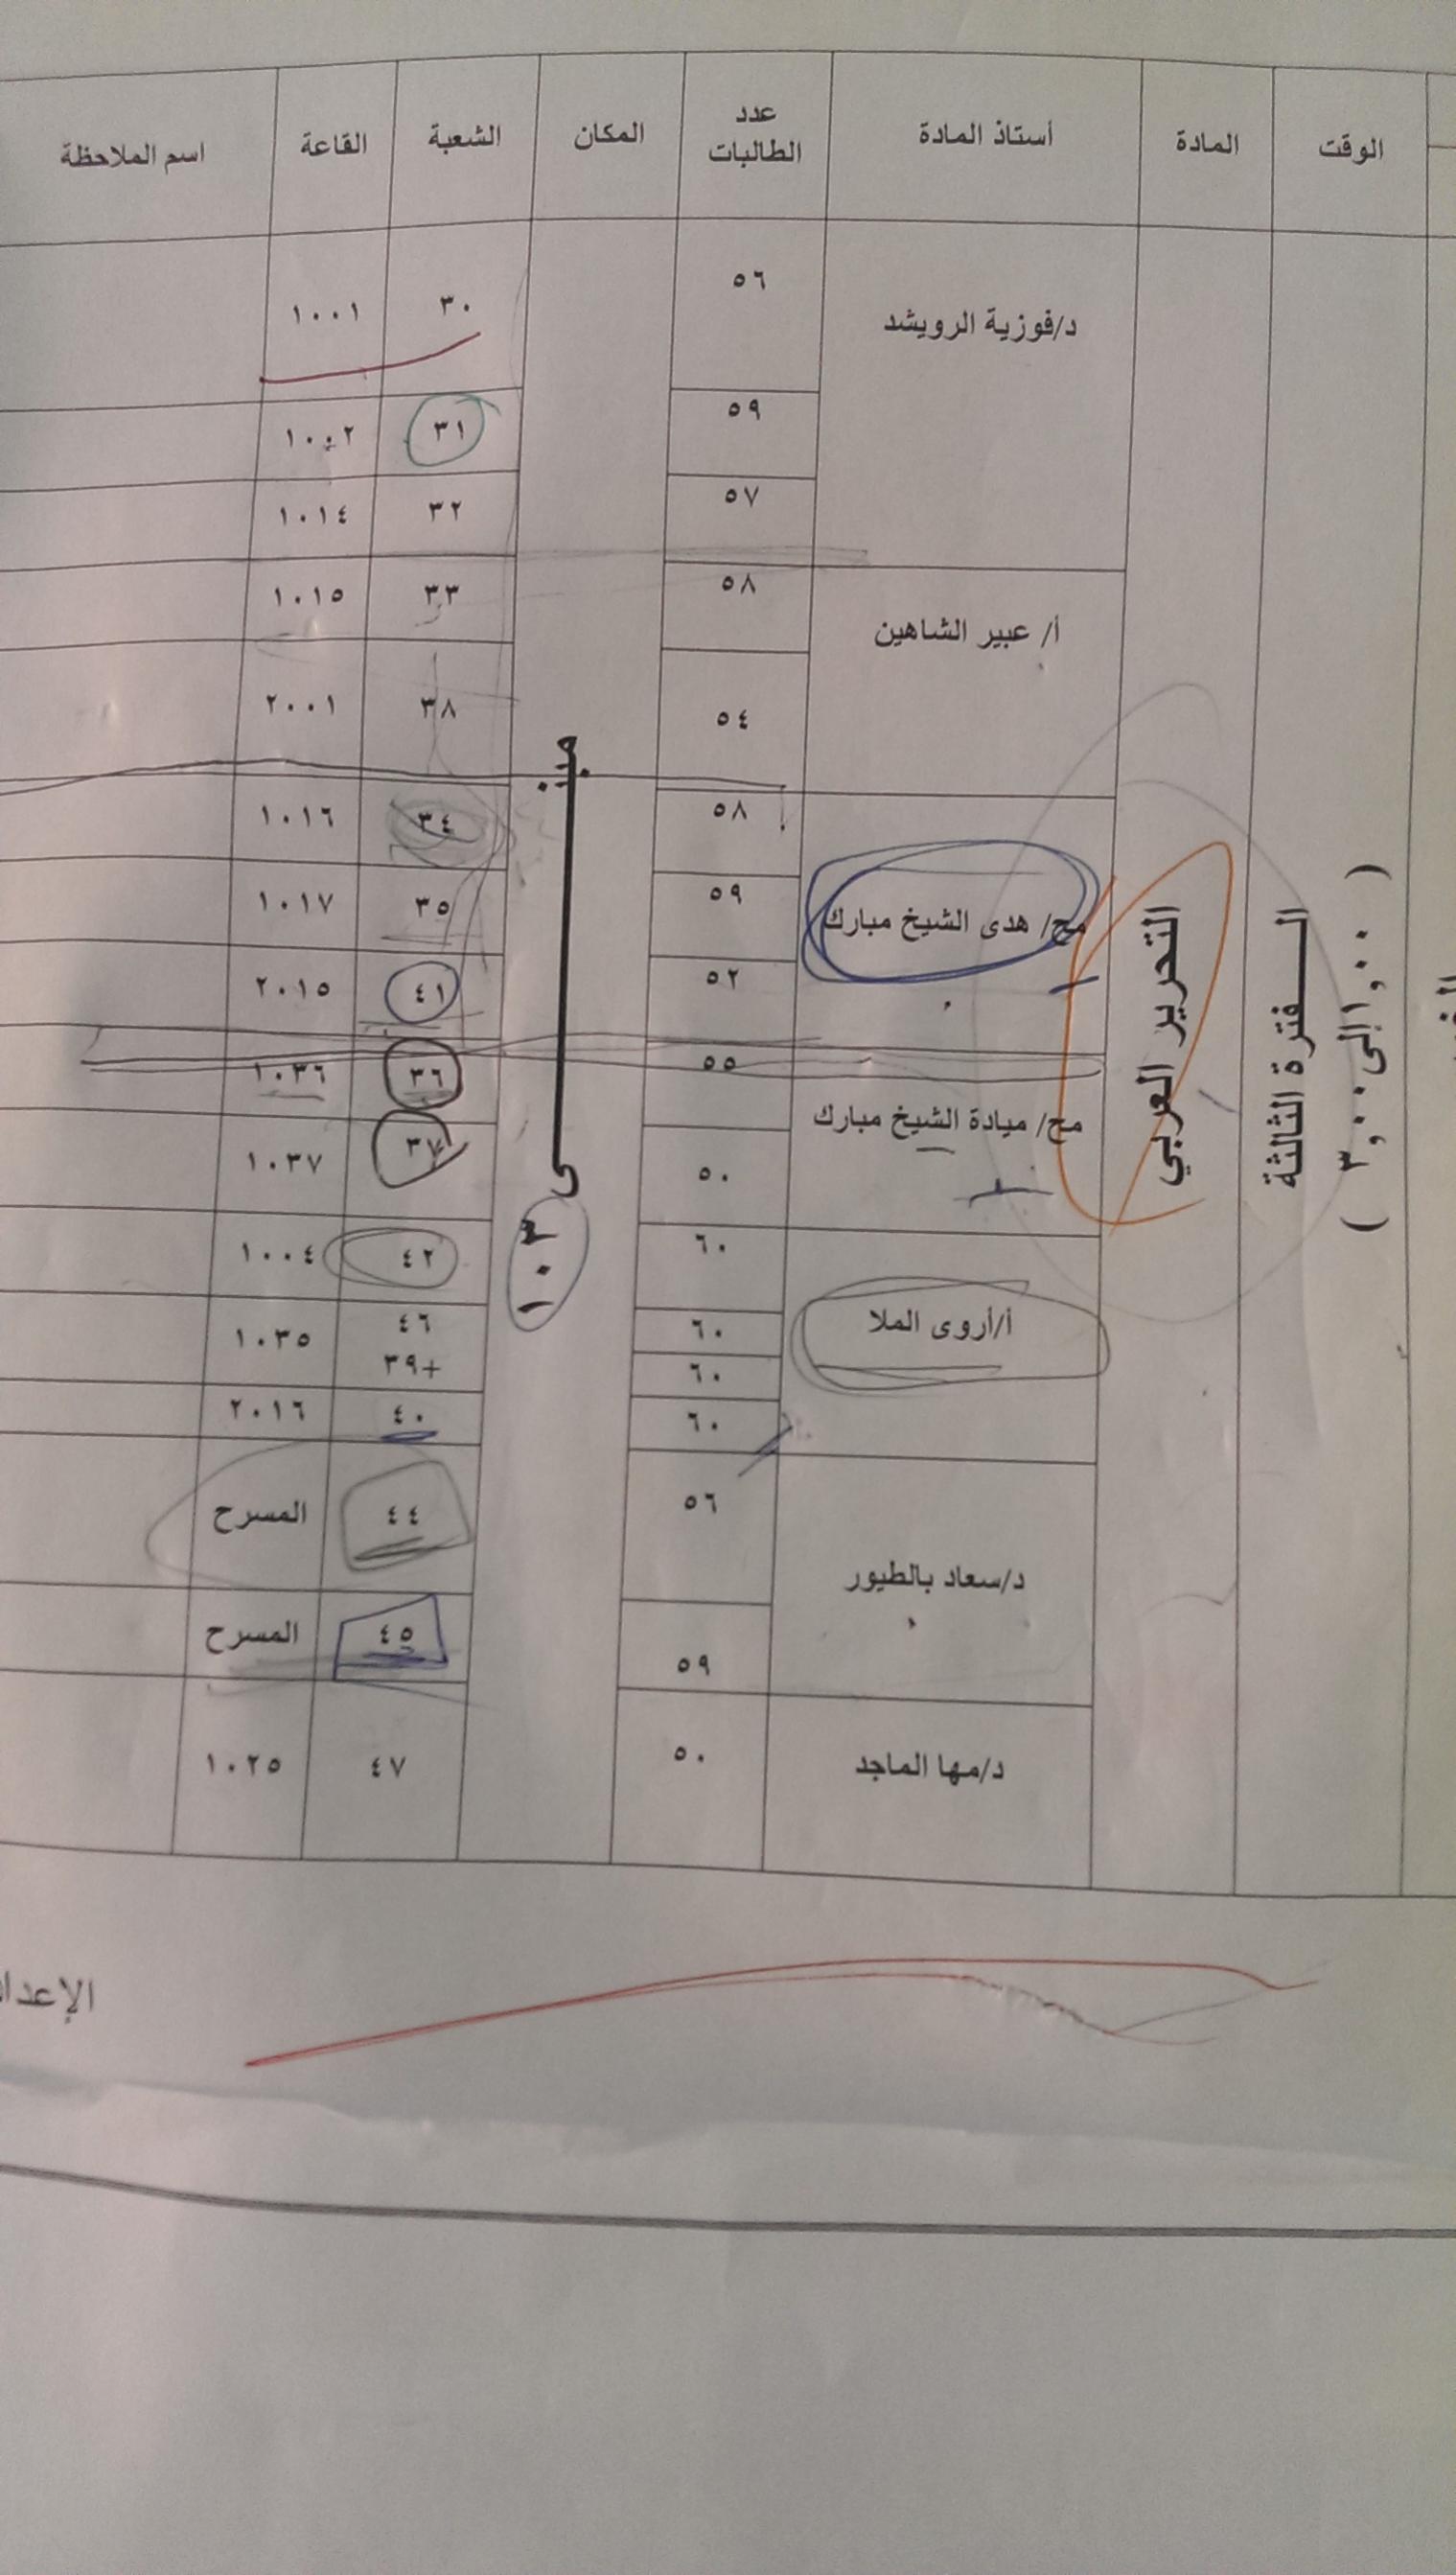 الوقت المادة أستاذ المادة عدد الطالبات المكان الشعبة القاعة اسم الملاحظة
الــفترة الثالثة
( ١,٠٠إلى ٣,٠٠ )
التحرير العربي
مبنى ١٠٣
د/فوزية الرويشد ٥٦ ٣٠ ١٠٠١
٥٩ ٣١ ١٠٠٢
٥٧ ٣٢ ١٠١٤
أ/ عبير الشاهين ٥٨ ٣٣ ١٠١٥
٥٤ ٣٨ ٢٠٠١
مح/ هدى الشيخ مبارك ٥٨ ٣٤ ١٠١٦
٥٩ ٣٥ ١٠١٧
٥٢ ٤١ ٢٠١٥
مح/ ميادة الشيخ مبارك ٥٥ ٣٦ ١٠٣٦
٥٠ ٣٧ ١٠٣٧
أ/أروى الملا ٦٠ ٤٢ ١٠٠٤
٦٠ ٤٦ ١٠٣٥
٦٠ +٣٩
٦٠ ٤٠ ٢٠١٦
د/سعاد بالطيور ٥٦ ٤٤ المسرح
٥٩ ٤٥ المسرح
د/مها الماجد ٥٠ ٤٧ ١٠٢٥